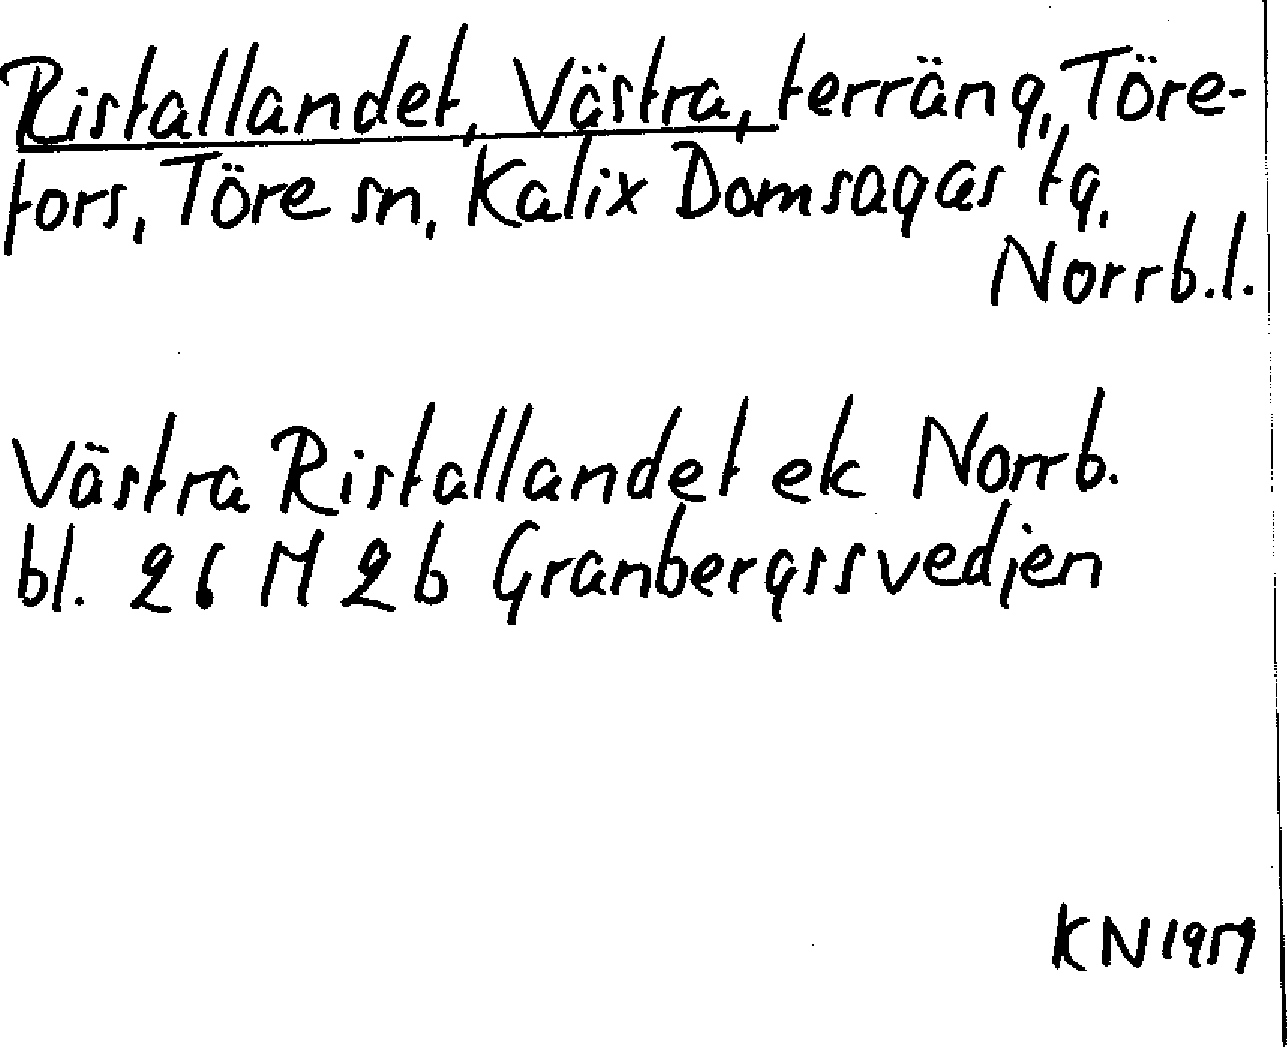 Ristallandet, Västra, terräng, Töre-
fors, Töre sn, Kalix Domsagas tg,
Norrb.l.
Västra Ristallandet ek Norrb.
bl. 26 M 2b Granbergssvedjen
KN